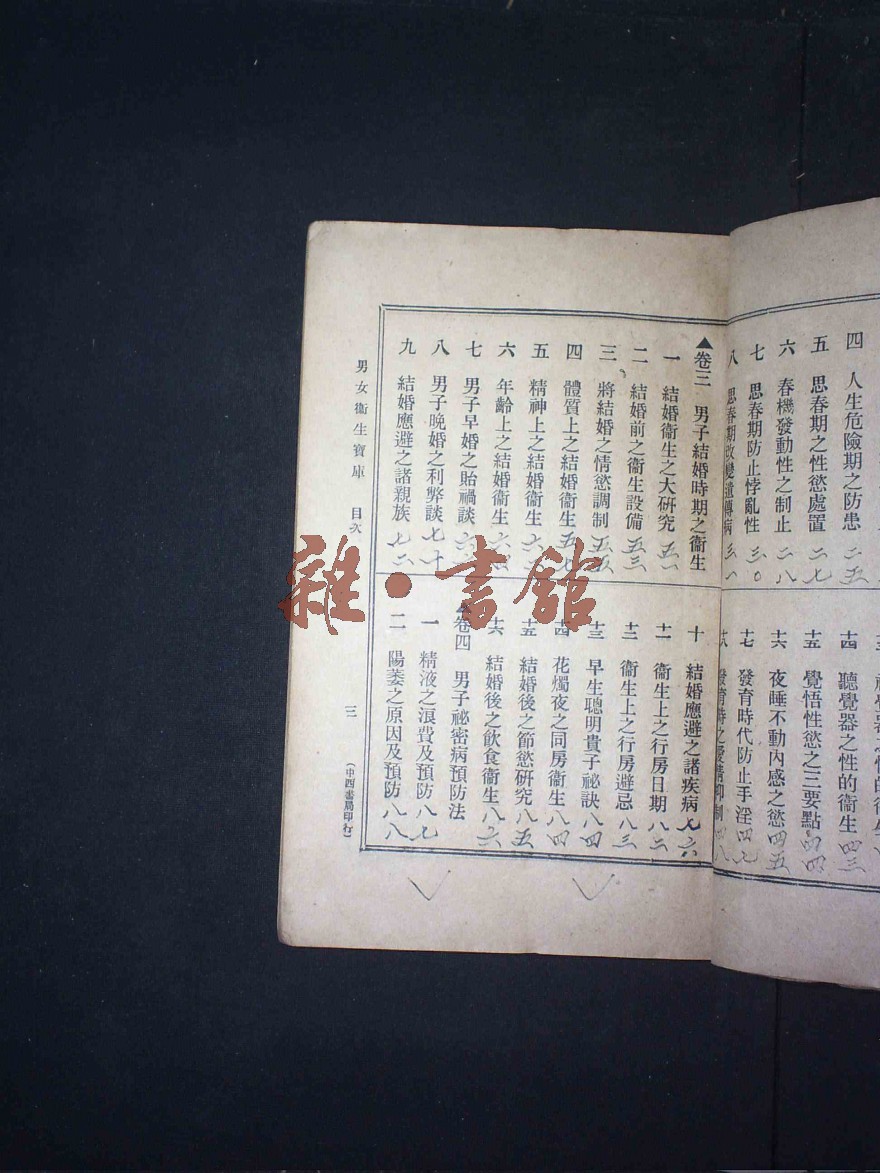 四 人生危險期之防患 二五
五 思春期之性慾處置 二七
六 春機發動性之制止 二八
七 思春期防止悖亂性 三〇
八 思春期改變遺傳病 三一
十四 聽覺器之性的衞生 四三
十五 覺悟性慾之三要點 四四
十六 夜睡不動內感之慾 四五
十七 發育時代防止手淫 四七
十八 發育時之愛情抑制 四八
▲卷三 男子結婚時期之衞生
一 結婚衞生之大研究 五一
二 結婚前之衞生設備 五三
三 將結婚之情慾調制 五五
四 體質上之結婚衞生 五七
五 精神上之結婚衞生
六 年齡上之結婚衞生
七 男子早婚之貽禍談
八 男子晚婚之利弊談 七十
九 結婚應避之諸親族 七二
十 結婚應避之諸疾病 七六
十一 衞生上之行房日期 八二
十二 衞生上之行房避忌 八三
十三 早生聰明貴子祕訣 八四
十四 花燭夜之同房衞生 八四
十五 結婚後之節慾研究 八五
十六 結婚後之飲食衞生 八六
▲卷四 男子祕密病預防法
一 精液之浪費及預防 八七
二 陽萎之原因及預防 八八
男女衞生寶庫 目次
三
(中西書局印行)
雜·書館